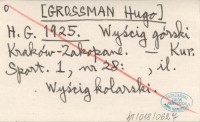 0 [GROSSMAN Hugo]
H. G. 1925. Wyścig górski
Kraków-Zakopane. Kur.
Sport. 1, nr 28: , il.
. Wyścig kolarski.